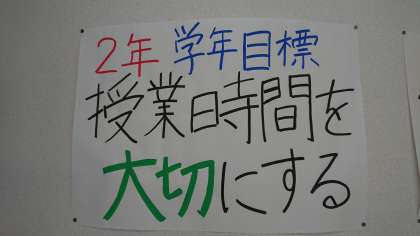 2年 学年目標
授業時間を
大切にする